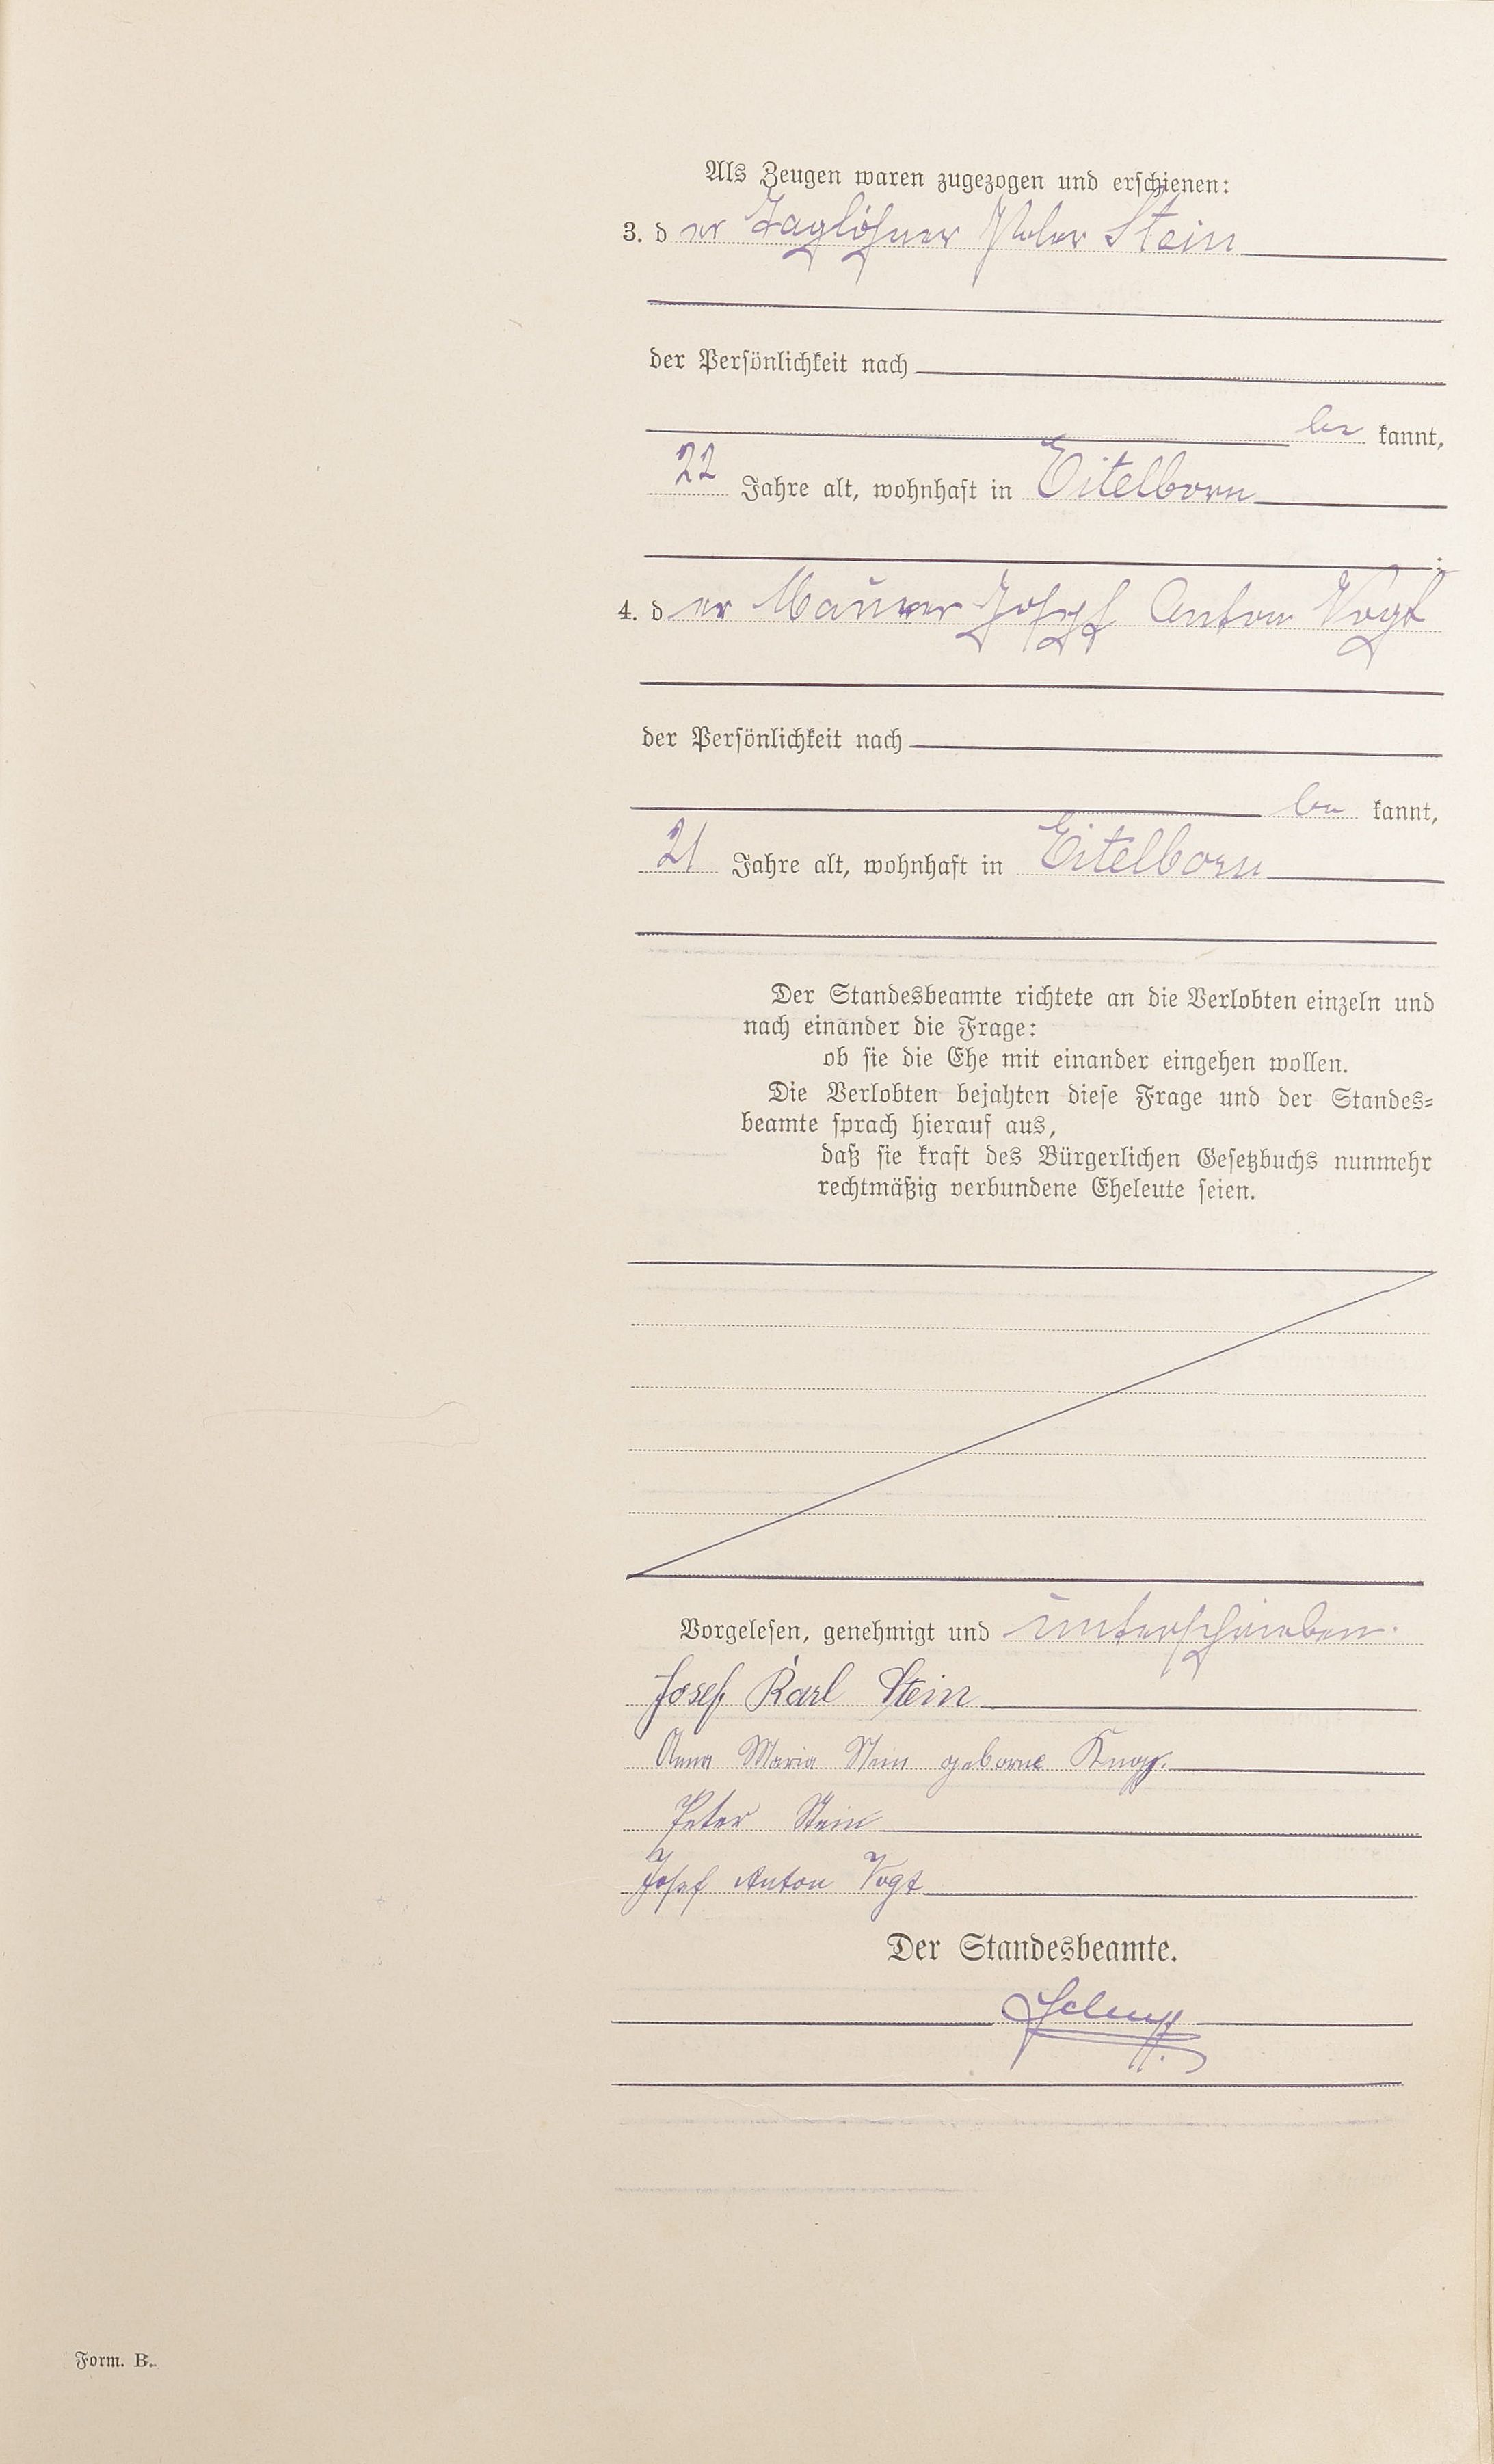 Als Zeugen waren zugezogen und erschienen:
3. der Taglöhner Peter Stein
der Persönlichkeit nach
be kannt,
22 Jahre alt, wohnhaft in Eitelborn
4. der Maurer Josef Anton Vogt
der Persönlichkeit nach
be kannt,
21 Jahre alt, wohnhaft in Eitelborn
Der Standesbeamte richtete an die Verlobten einzeln und
nach einander die Frage:
ob sie die Ehe mit einander eingehen wollen.
Die Verlobten bejahten diese Frage und der Standes-
beamte sprach hierauf aus,
daß sie kraft des Bürgerlichen Gesetzbuchs nunmehr
rechtmäßig verbundene Eheleute seien.
Vorgelesen, genehmigt und unterschrieben.
Josef Karl Stein
Anna Maria Stein geborne Knopp.
Peter Stein
Josef Anton Vogt
Der Standesbeamte.
Form. B.